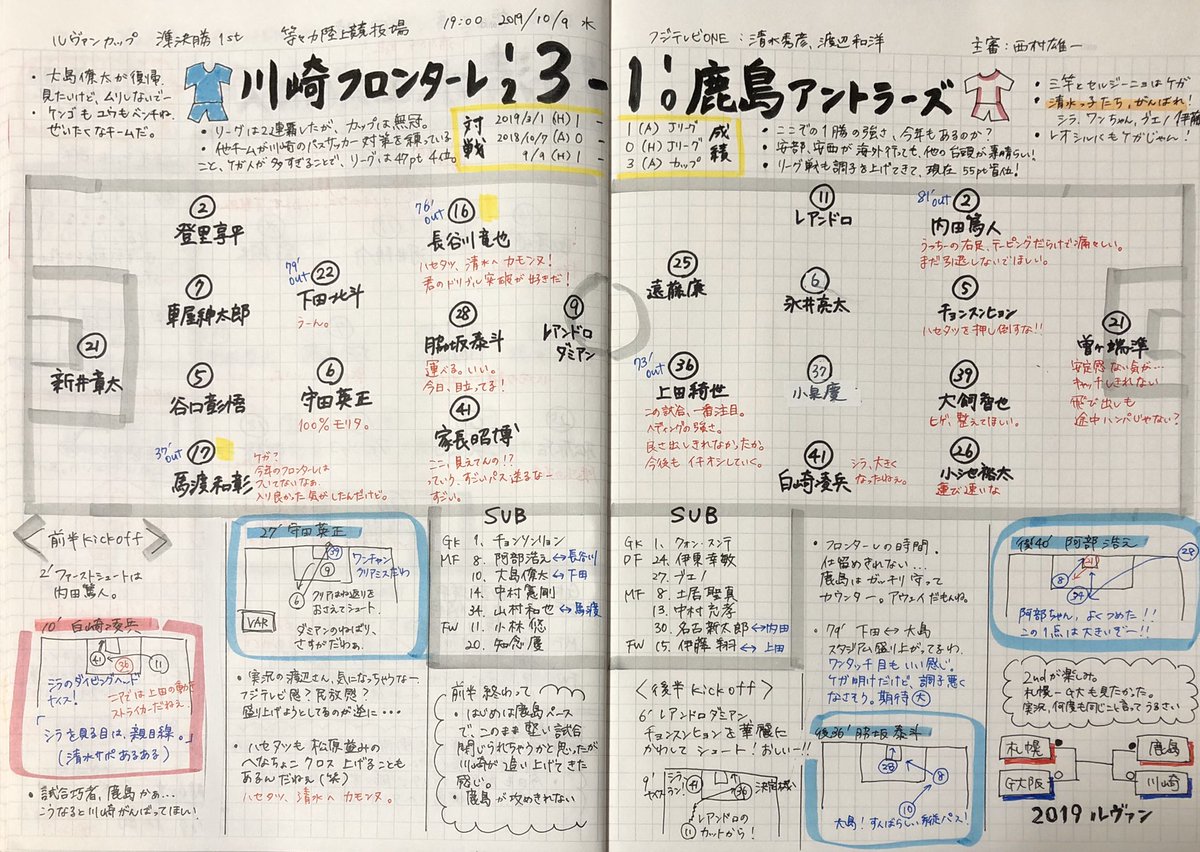 ルヴァンカップ 準決勝1st 等々力陸上競技場 19:00 2019/10/9 水
フジテレビONE:清水秀彦、渡辺和洋 主審:西村雄一
川崎フロンターレ 1 2 3 - 1 1 0 鹿島アントラーズ
・大島僚太が復帰。
見たいけど、ムリしないでー
・ケンゴもユウもベンチね。
ぜいたくなチームだ。
・リーグは2連覇したが、カップは無冠。
・他チームが川崎のパスサッカー対策を練っている
こと、ケガ人が多すぎることで、リーグは47pt 4位。
対戦 成績
2019/3/1 (H) 1 - 1 (A) Jリーグ
2018/10/7 (A) 0 - 0 (H) Jリーグ
9/9 (H) 1 - 3 (A) カップ
・ここでの1勝の強さ、今年もあるのか?
・安部、安西が海外行っても、他の台頭が素晴らしい!
・リーグ戦も調子を上げてきて、現在55pt首位!
・三竿とセルジーニョはケガ
・清水っ子たち、がんばれ!
シラ、ワンちゃん、ブエノ、伊藤
・レオシルバもケガじゃん!
② 登里享平
⑦ 車屋紳太郎
㉑ 新井章太
⑤ 谷口彰悟
37'out ⑰ 馬渡和彰
ケガ?
今年のフロンターレは
ツイてないなぁ。
入り良かった気がしたんだけど。
79'out ㉒ 下田北斗
うーん。
⑥ 守田英正
100%モリタ。
76'out ⑯ 長谷川竜也
ハセタツ、清水へカモンヌ!
君のドリブル突破が好きだ!
㉘ 脇坂泰斗
運べる。いい。
今日、目立ってる!
㊶ 家長昭博
ここ、見えてんの!?
っていう、すごいパス送るなー
すごい。
⑨ レアンドロ
ダミアン
⑪ レアンドロ
㉕ 遠藤康
73'out ㊱ 上田綺世
この試合、一番注目。
ヘディングの強さ。
良さ出しきれなかったか。
今後もイチオシしていく。
⑥ 永井亮太
㊲ 小泉慶
㊶ 白崎凌兵
シラ、大きく
なったねぇ。
81'out ② 内田篤人
うっちーの右足、テーピングだらけで痛々しい。
まだ引退しないでほしい。
⑤ チョンスンヒョン
ハセタツを押し倒すな!!
㊴ 犬飼智也
ヒゲ、整えてほしい。
㉖ 小池裕太
運び速いな
㉑ 曽ヶ端準
安定感ない気が…
キャッチしきれない
飛び出しも
途中ハンパじゃない?
<前半kickoff>
2' ファーストシュートは
内田篤人。
10' 白崎凌兵
㊶ ㊱ ⑪
シラのダイビングヘッド
ナイス!
ニアは上田の動き
ストライカーだねぇ
「シラを見る目は、親目線。」
(清水サポあるある)
・試合巧者、鹿島かぁ…
こうなると川崎がんばってほしい!
27' 守田英正
㊴ ⑨ ⑥
ワンチャン
クリアミスだわ
クリアはね返りを
おさえてシュート。
VAR
ダミアンのねばり、
さすがだわぁ。
・実況の渡辺さん、気になっちゃうなー。
フジテレビ感?民放感?
盛り上げようとしてるのが逆に…
・ハセタツも松原並みの
へなちょこクロス上げることも
あるんだねぇ(笑)
ハセタツ、清水へカモンヌ。
SUB
GK 1. チョンソンリョン
MF 8. 阿部浩之 ↔長谷川
10. 大島僚太 ↔下田
14. 中村憲剛
34. 山村和也 ↔馬渡
FW 11. 小林悠
20. 知念慶
前半終わって
・はじめは鹿島ペース
で、このまま堅い試合
闘いられちゃうかと思ったが
川崎が追い上げてきた
感じ。
・鹿島が攻めきれない
SUB
GK 1. クォン・スンテ
DF 24. 伊東幸敏
27. ブエノ
MF 8. 土居聖真
13. 中村充孝
30. 名古新太郎 ↔内田
FW 15. 伊藤翔 ↔上田
<後半kickoff>
6' レアンドロダミアン、
チョンスンヒョンを華麗に
かわしてシュート!おしい!!
9' シラ、ラン!
ナイス
㊶ ㊱ 決定機い
レアンドロの
⑪ カットから!
・フロンターレの時間。
仕留めきれない…
鹿島はガッチリ守って
カウンター。アウェイだもんね。
・79' 下田↔大島
スタジアム盛り上がってるわ。
ワンタッチ目もいい感じ。
ケガ明けだけど、調子悪く
なさそう。期待(大)
後36' 脇坂泰斗
㉘ ⑧ ⑩
大島!すんばらしい縦パス!
後40' 阿部浩之
㉑ ⑧ ㉞ ㉘
阿部ちゃん、よくつめた!!
この1点は大きいぞー!!
2ndが楽しみ。
札幌-G大も見たかった。
実況、何度も同じこと言ってうるさい
札幌 鹿島
G大阪 川崎
2019 ルヴァン